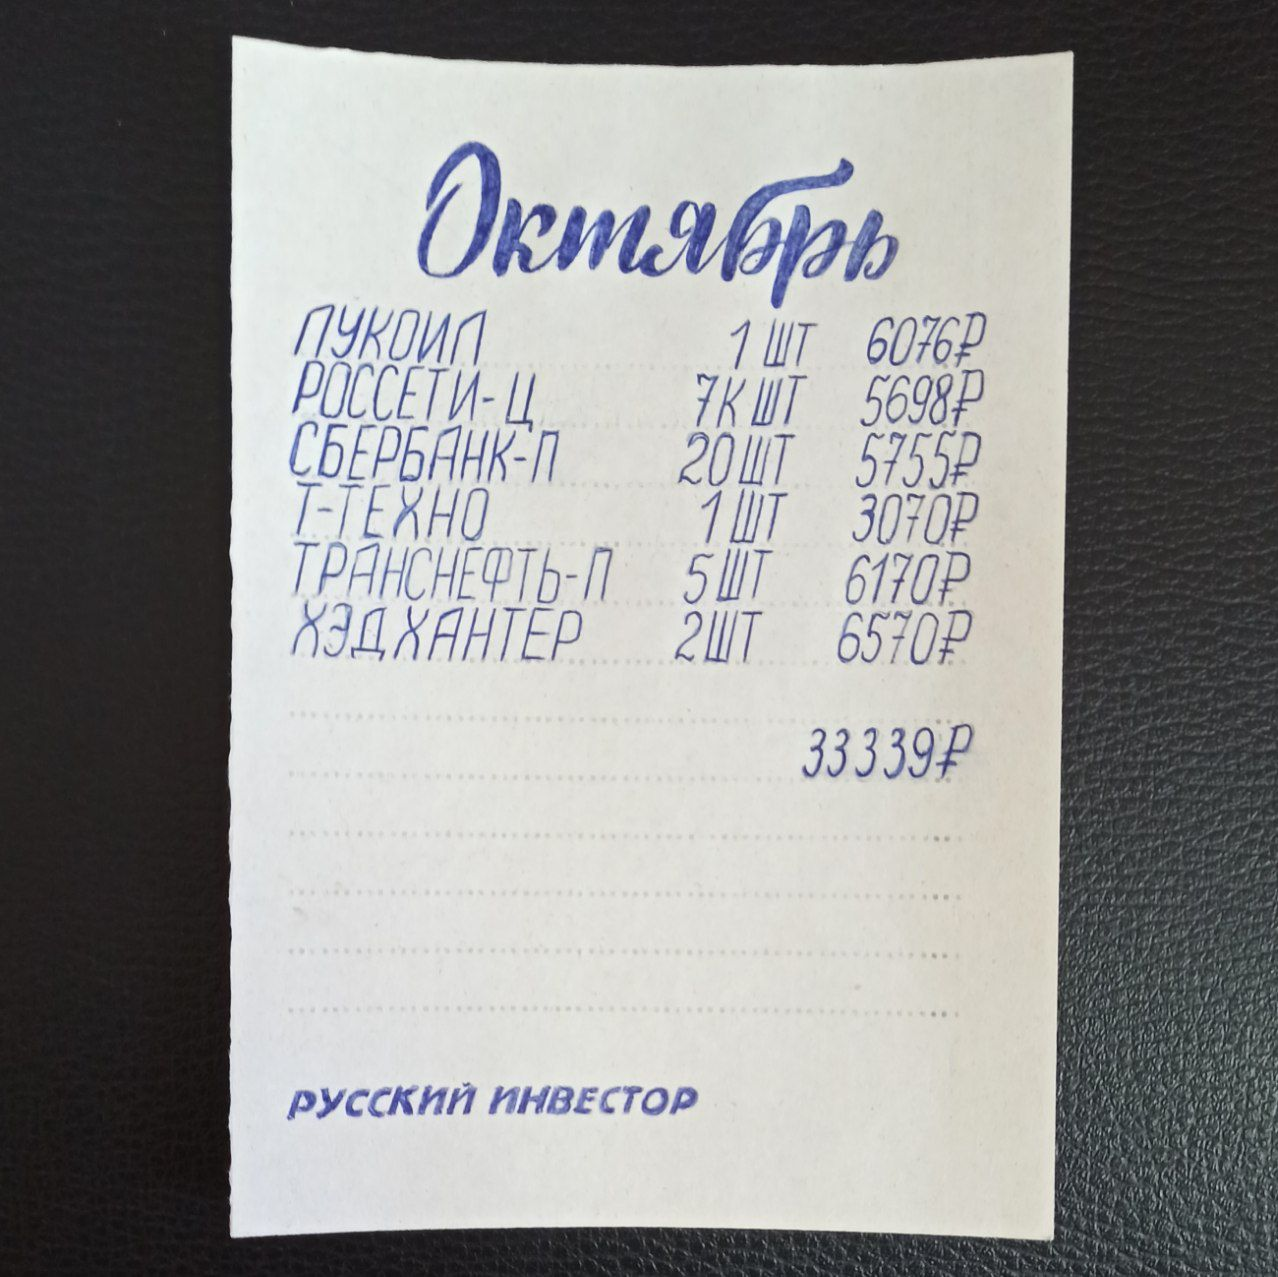 Октябрь
ЛУКОИЛ 1 ШТ 6076₽
РОССЕТИ-Ц 7К ШТ 5698₽
СБЕРБАНК-П 20 ШТ 5755₽
Т-ТЕХНО 1 ШТ 3070₽
ТРАНСНЕФТЬ-П 5 ШТ 6170₽
ХЭДХАНТЕР 2 ШТ 6570₽
33339₽
РУССКИЙ ИНВЕСТОР